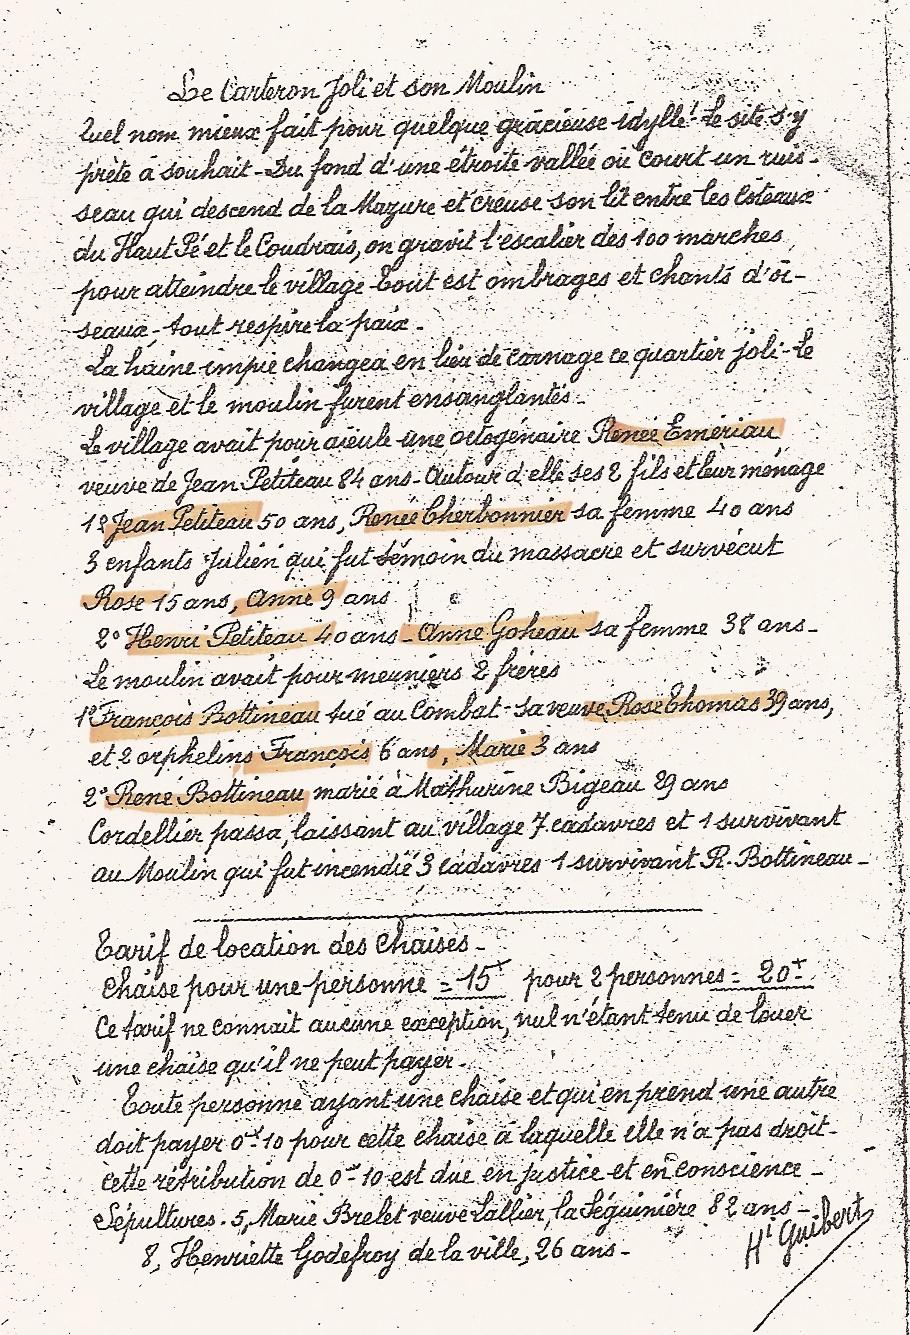 Le Carteron Joli et son Moulin
Quel nom mieux fait pour quelque gracieuse idylle! le site s'y
prète à souhait - Du fond d'une étroite vallée où court un ruis-
seau qui descend de la Mazure et creuse son lit entre les Coteaux
du Haut Pé et le Coudrais, on gravit l'escalier des 100 marches
pour atteindre le village - Tout est ombrages et chants d'oi-
seaux - tout respire la paix -
La haine impie changea en lieu de carnage ce quartier joli - le
village et le moulin furent ensanglantés -
Le village avait pour aïeule une octogénaire Renée Emériau
veuve de Jean Petiteau 84 ans - Autour d'elle ses 2 fils et leur ménage
1º Jean Petiteau 50 ans, Renée Cherbonnier sa femme 40 ans
3 enfants Julien qui fut témoin du massacre et survécut
Rose 15 ans, Anne 9 ans
2º Henri Petiteau 40 ans - Anne Goheau sa femme 38 ans -
Le moulin avait pour meuniers 2 frères
1º François Bottineau tué au Combat - sa veuve Rose Thomas 39 ans,
et 2 orphelins François 6 ans, Marie 3 ans
2º René Bottineau marié à Mathurine Bigeau 29 ans
Cordellier passa, laissant au village 7 cadavres et 1 survivant
au Moulin qui fut incendié 3 cadavres 1 survivant R. Bottineau -
Tarif de location des Chaises -
Chaise pour une personne = 15ᶠ pour 2 personnes = 20ᶠ
Ce tarif ne connait aucune exception, nul n'étant tenu de louer
une chaise qu'il ne peut payer -
Toute personne ayant une chaise et qui en prend une autre
doit payer 0ᶠ 10 pour cette chaise à laquelle elle n'a pas droit -
cette rétribution de 0ᶠ 10 est due en justice et en conscience -
Sépultures - 5, Marie Brelet veuve Lallier, la Séguinière 82 ans -
8, Henriette Godefroy de la ville, 26 ans -
Hⁱ Guibert